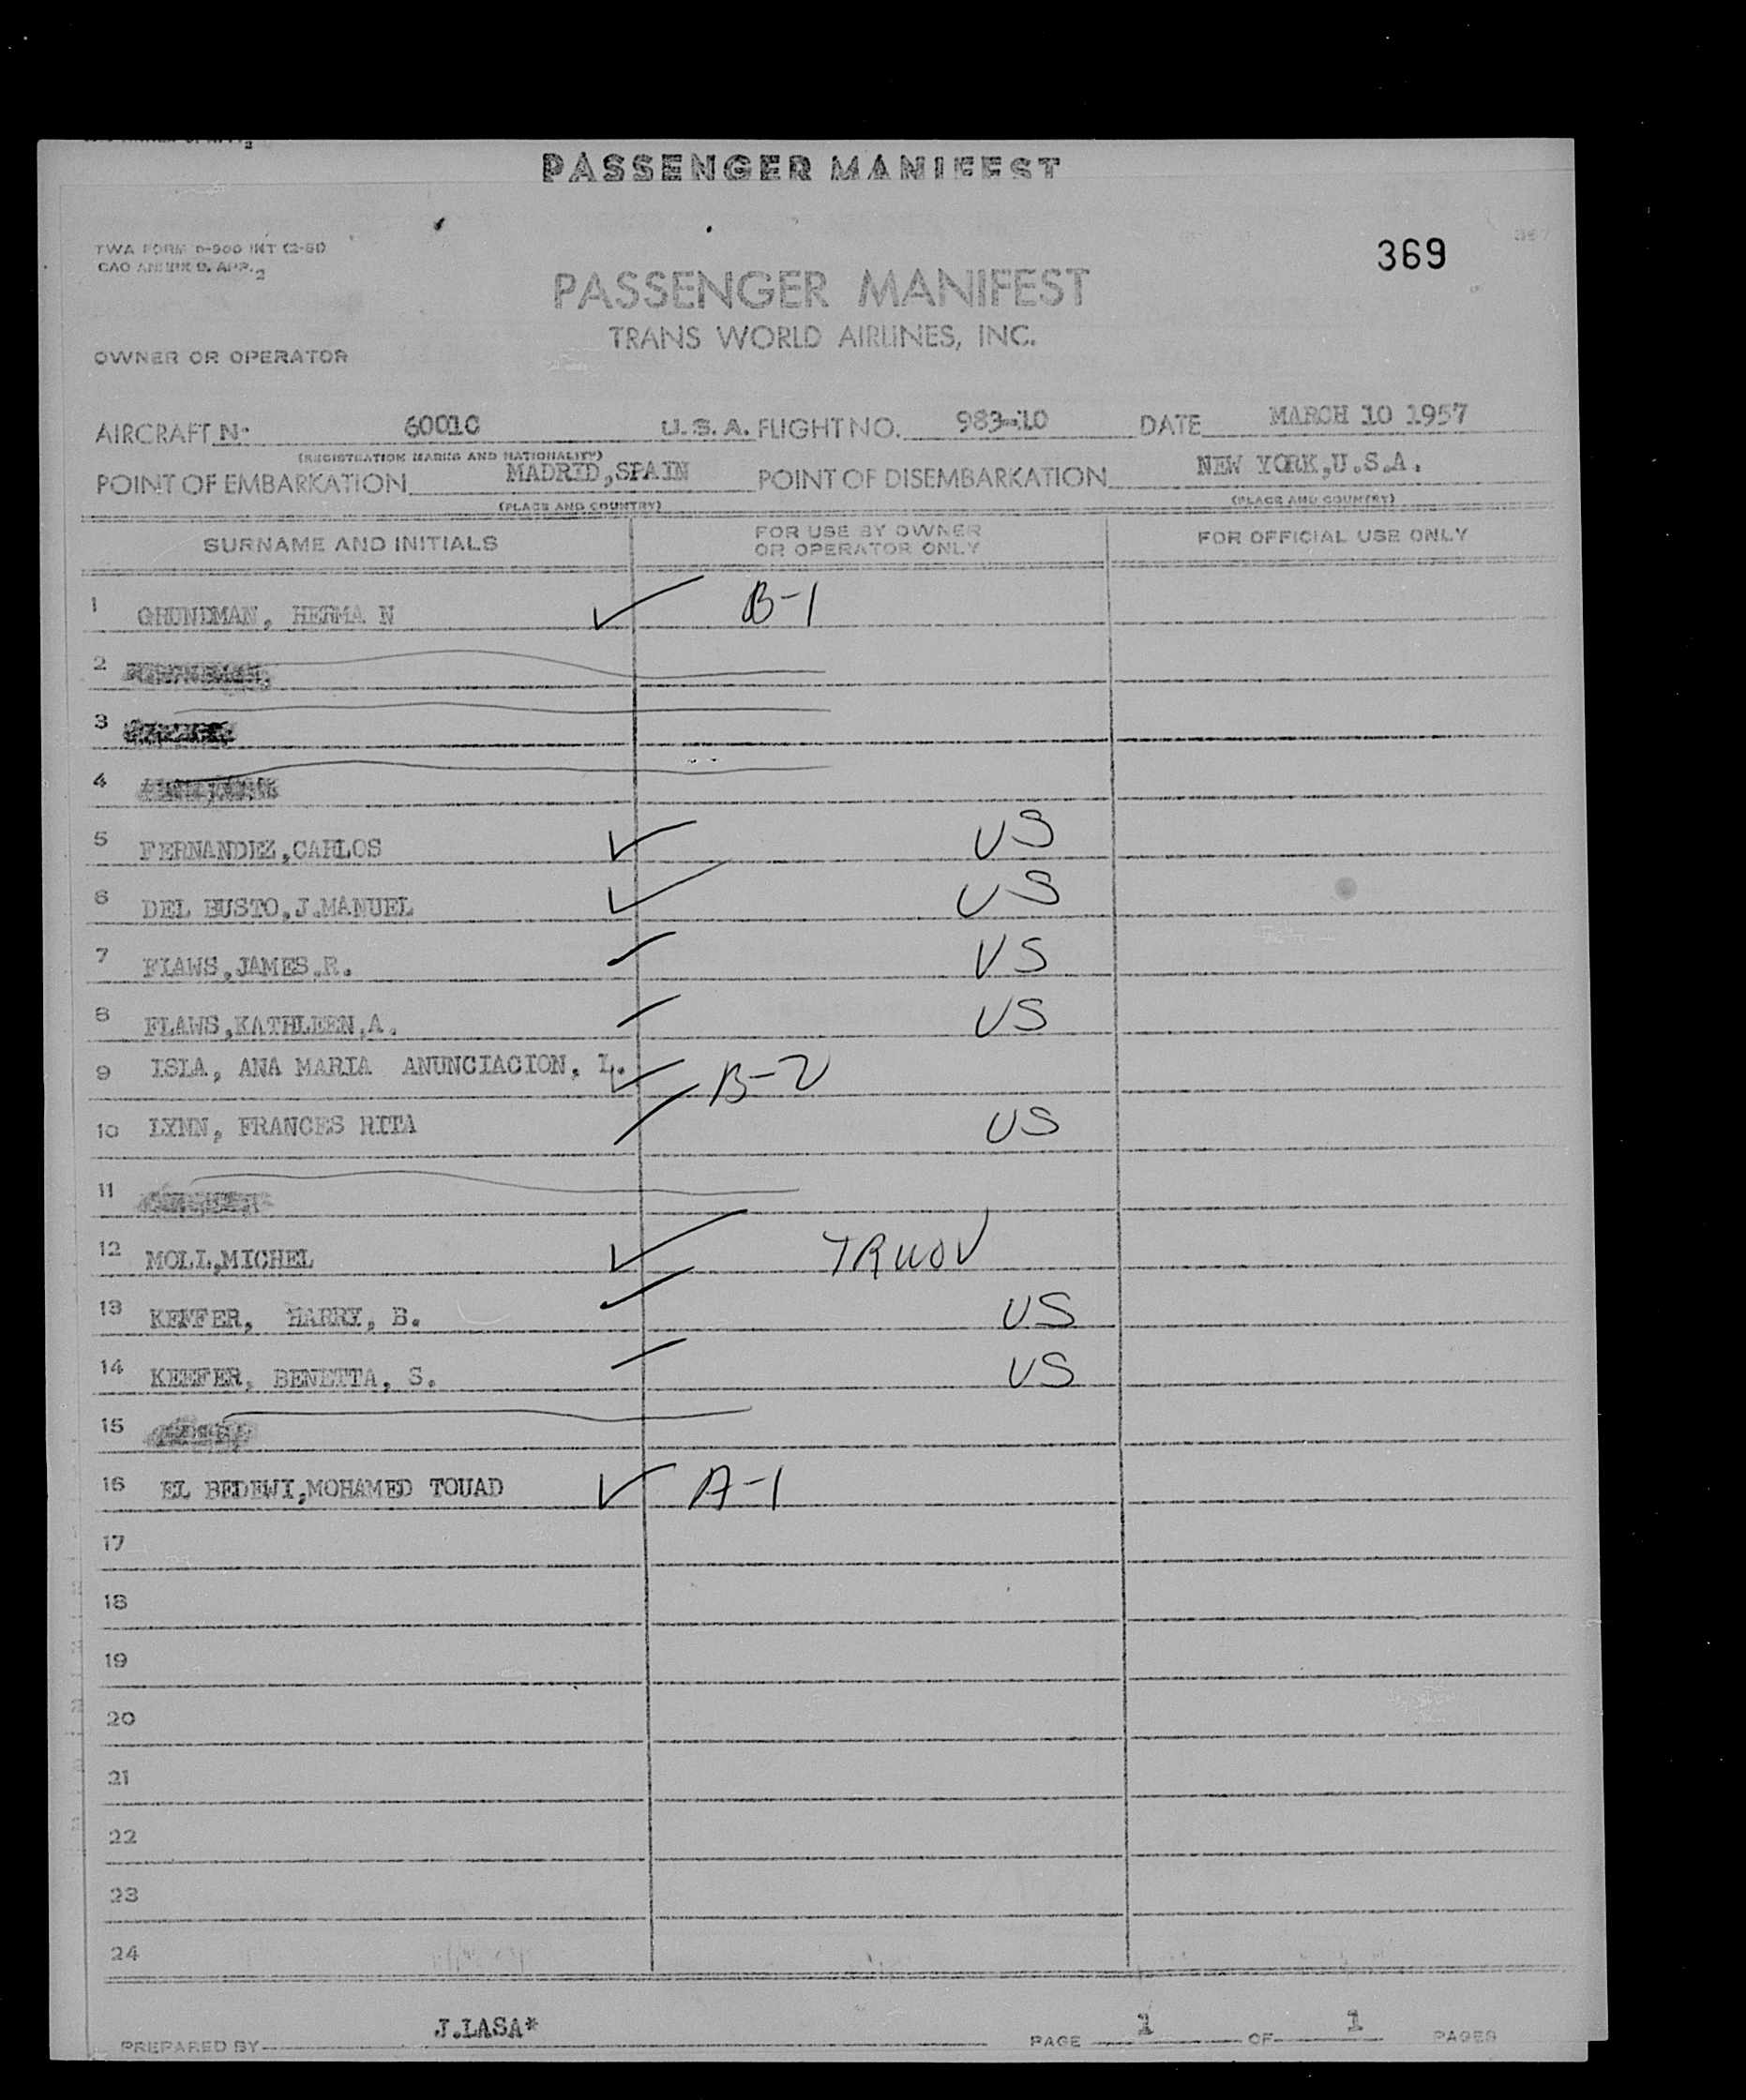 PASSENGER MANIFEST
369
TWA FORM O-900 INT (2-51)
CAO ANNEX 9, APP. 2
PASSENGER MANIFEST
TRANS WORLD AIRLINES, INC.
OWNER OR OPERATOR
AIRCRAFT Nº 6001C U.S.A. FLIGHT NO. 983-10 DATE MARCH 10 1957
(REGISTRATION MARKS AND NATIONALITY)
POINT OF EMBARKATION MADRID,SPAIN POINT OF DISEMBARKATION NEW YORK,U.S.A.
(PLACE AND COUNTRY) (PLACE AND COUNTRY)
SURNAME AND INITIALS FOR USE BY OWNER OR OPERATOR ONLY FOR OFFICIAL USE ONLY
1 GRUNDMAN, HERMA N ✓ B-1
2
3
4
5 FERNANDEZ,CARLOS ✓ US
6 DEL BUSTO,J.MANUEL ✓ US
7 FLAWS,JAMES.R. ✓ US
8 FLAWS,KATHLEEN,A. US
9 ISLA, ANA MARIA ANUNCIACION, L. ✓ B-2
10 LYNN, FRANCES RITA US
11
12 MOLL,MICHEL ✓ TRWOV
13 KEFFER, HARRY, B. ✓ US
14 KEFFER, BENETTA, S. US
15
16 EL BEDEWI,MOHAMED TOUAD ✓ A-1
17
18
19
20
21
22
23
24
PREPARED BY J.LASA* PAGE 1 OF 1 PAGES